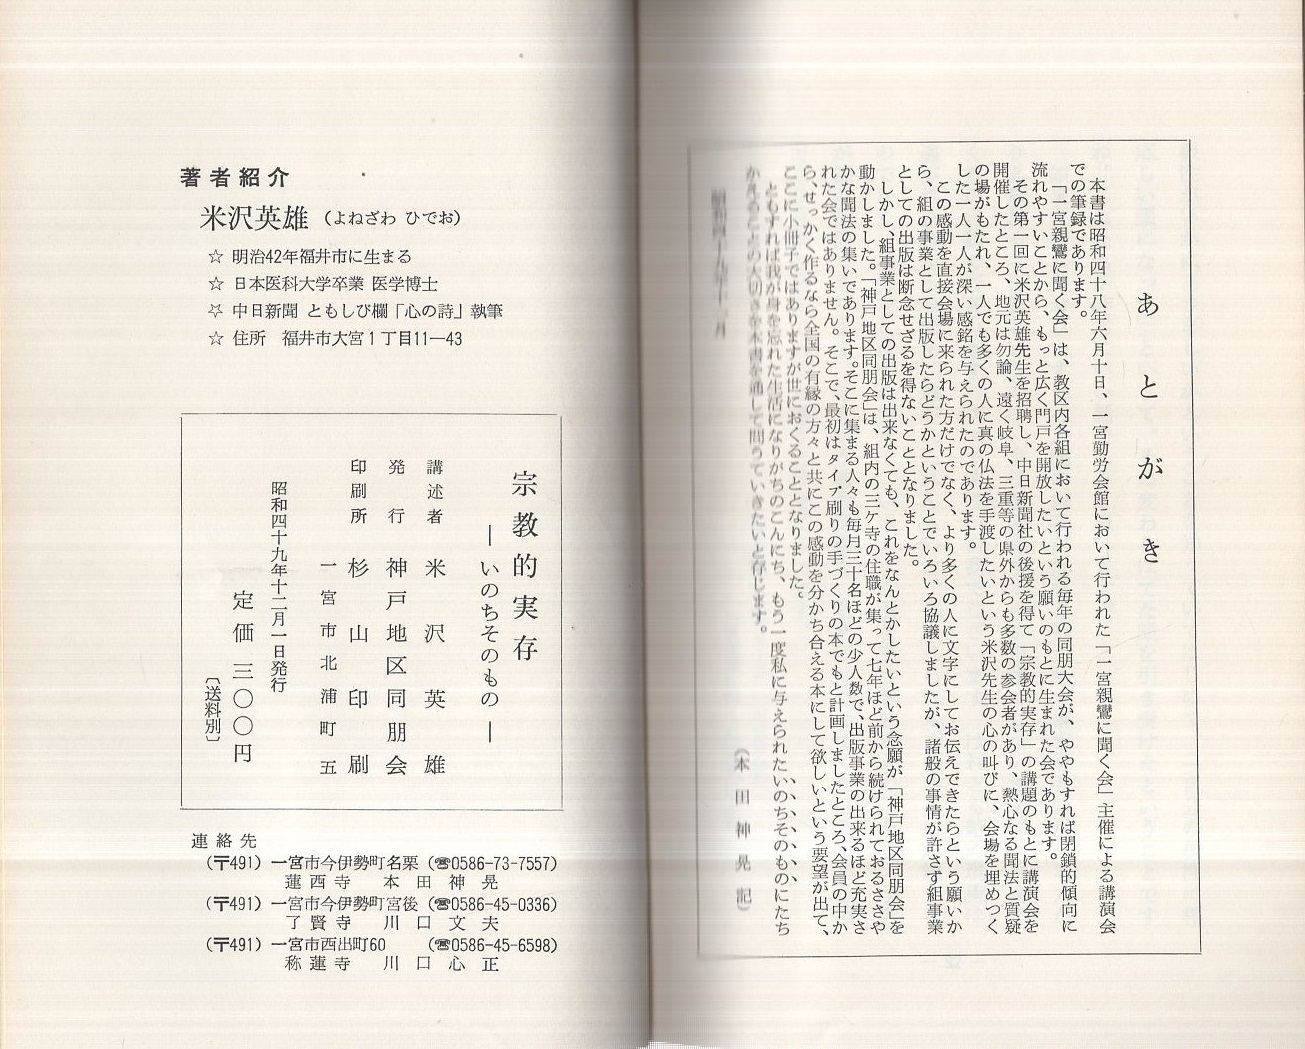 あとがき
本書は昭和四十八年六月十日、一宮勤労会館において行われた「一宮親鸞に聞く会」主催による講演会
での筆録であります。
「一宮親鸞に聞く会」は、教区内各組において行われる毎年の同朋大会が、ややもすれば閉鎖的傾向に
流れやすいことから、もっと広く門戸を開放したいという願いのもとに生まれた会であります。
その第一回に米沢英雄先生を招聘し、中日新聞社の後援を得て「宗教的実存」の講題のもとに講演会を
開催したところ、地元は勿論、遠く岐阜、三重等の県外からも多数の参会者があり、熱心なる聞法と質疑
の場がもたれ、一人でも多くの人に真の仏法を手渡したいという米沢先生の心の叫びに、会場を埋めつく
した一人一人が深い感銘を与えられたのであります。
この感動を直接会場に来られた方だけでなく、より多くの人に文字にしてお伝えできたらという願いか
ら、組の事業として出版したらどうかということでいろいろ協議しましたが、諸般の事情が許さず組事業
としての出版は断念せざるを得ないこととなりました。
しかし、組事業としての出版は出来なくても、これをなんとかしたいという念願が「神戸地区同朋会」を
動かしました。「神戸地区同朋会」は、組内の三ケ寺の住職が集って七年ほど前から続けられておるささや
かな聞法の集いであります。そこに集まる人々も毎月三十名ほどの少人数で、出版事業の出来るほど充実さ
れた会ではありません。そこで、最初はタイプ刷りの手づくりの本でもと計画しましたところ、会員の中か
ら、せっかく作るなら全国の有縁の方々と共にこの感動を分かち合える本にして欲しいという要望が出て、
ここに小冊子ではありますが世におくることとなりました。
ともすれば我が身を忘れた生活になりがちのこんにち、もう一度私に与えられたいのちそのものにたち
かえることの大切さを本書を通して問うていきたいと存じます。
昭和四十九年十一月
(本田神晃記)
著者紹介
米沢英雄(よねざわ ひでお)
☆ 明治42年福井市に生まる
☆ 日本医科大学卒業 医学博士
☆ 中日新聞 ともしび欄「心の詩」執筆
☆ 住所 福井市大宮1丁目11―43
宗教的実存
―いのちそのもの―
講述者 米沢英雄
発行 神戸地区同朋会
印刷所 杉山印刷
一宮市北浦町五
昭和四十九年十二月一日発行
定価 三〇〇円
〔送料別〕
連絡先
(〒491) 一宮市今伊勢町名栗 (☎0586-73-7557)
蓮西寺 本田神晃
(〒491) 一宮市今伊勢町宮後 (☎0586-45-0336)
了賢寺 川口文夫
(〒491) 一宮市西出町60 (☎0586-45-6598)
称蓮寺 川口心正